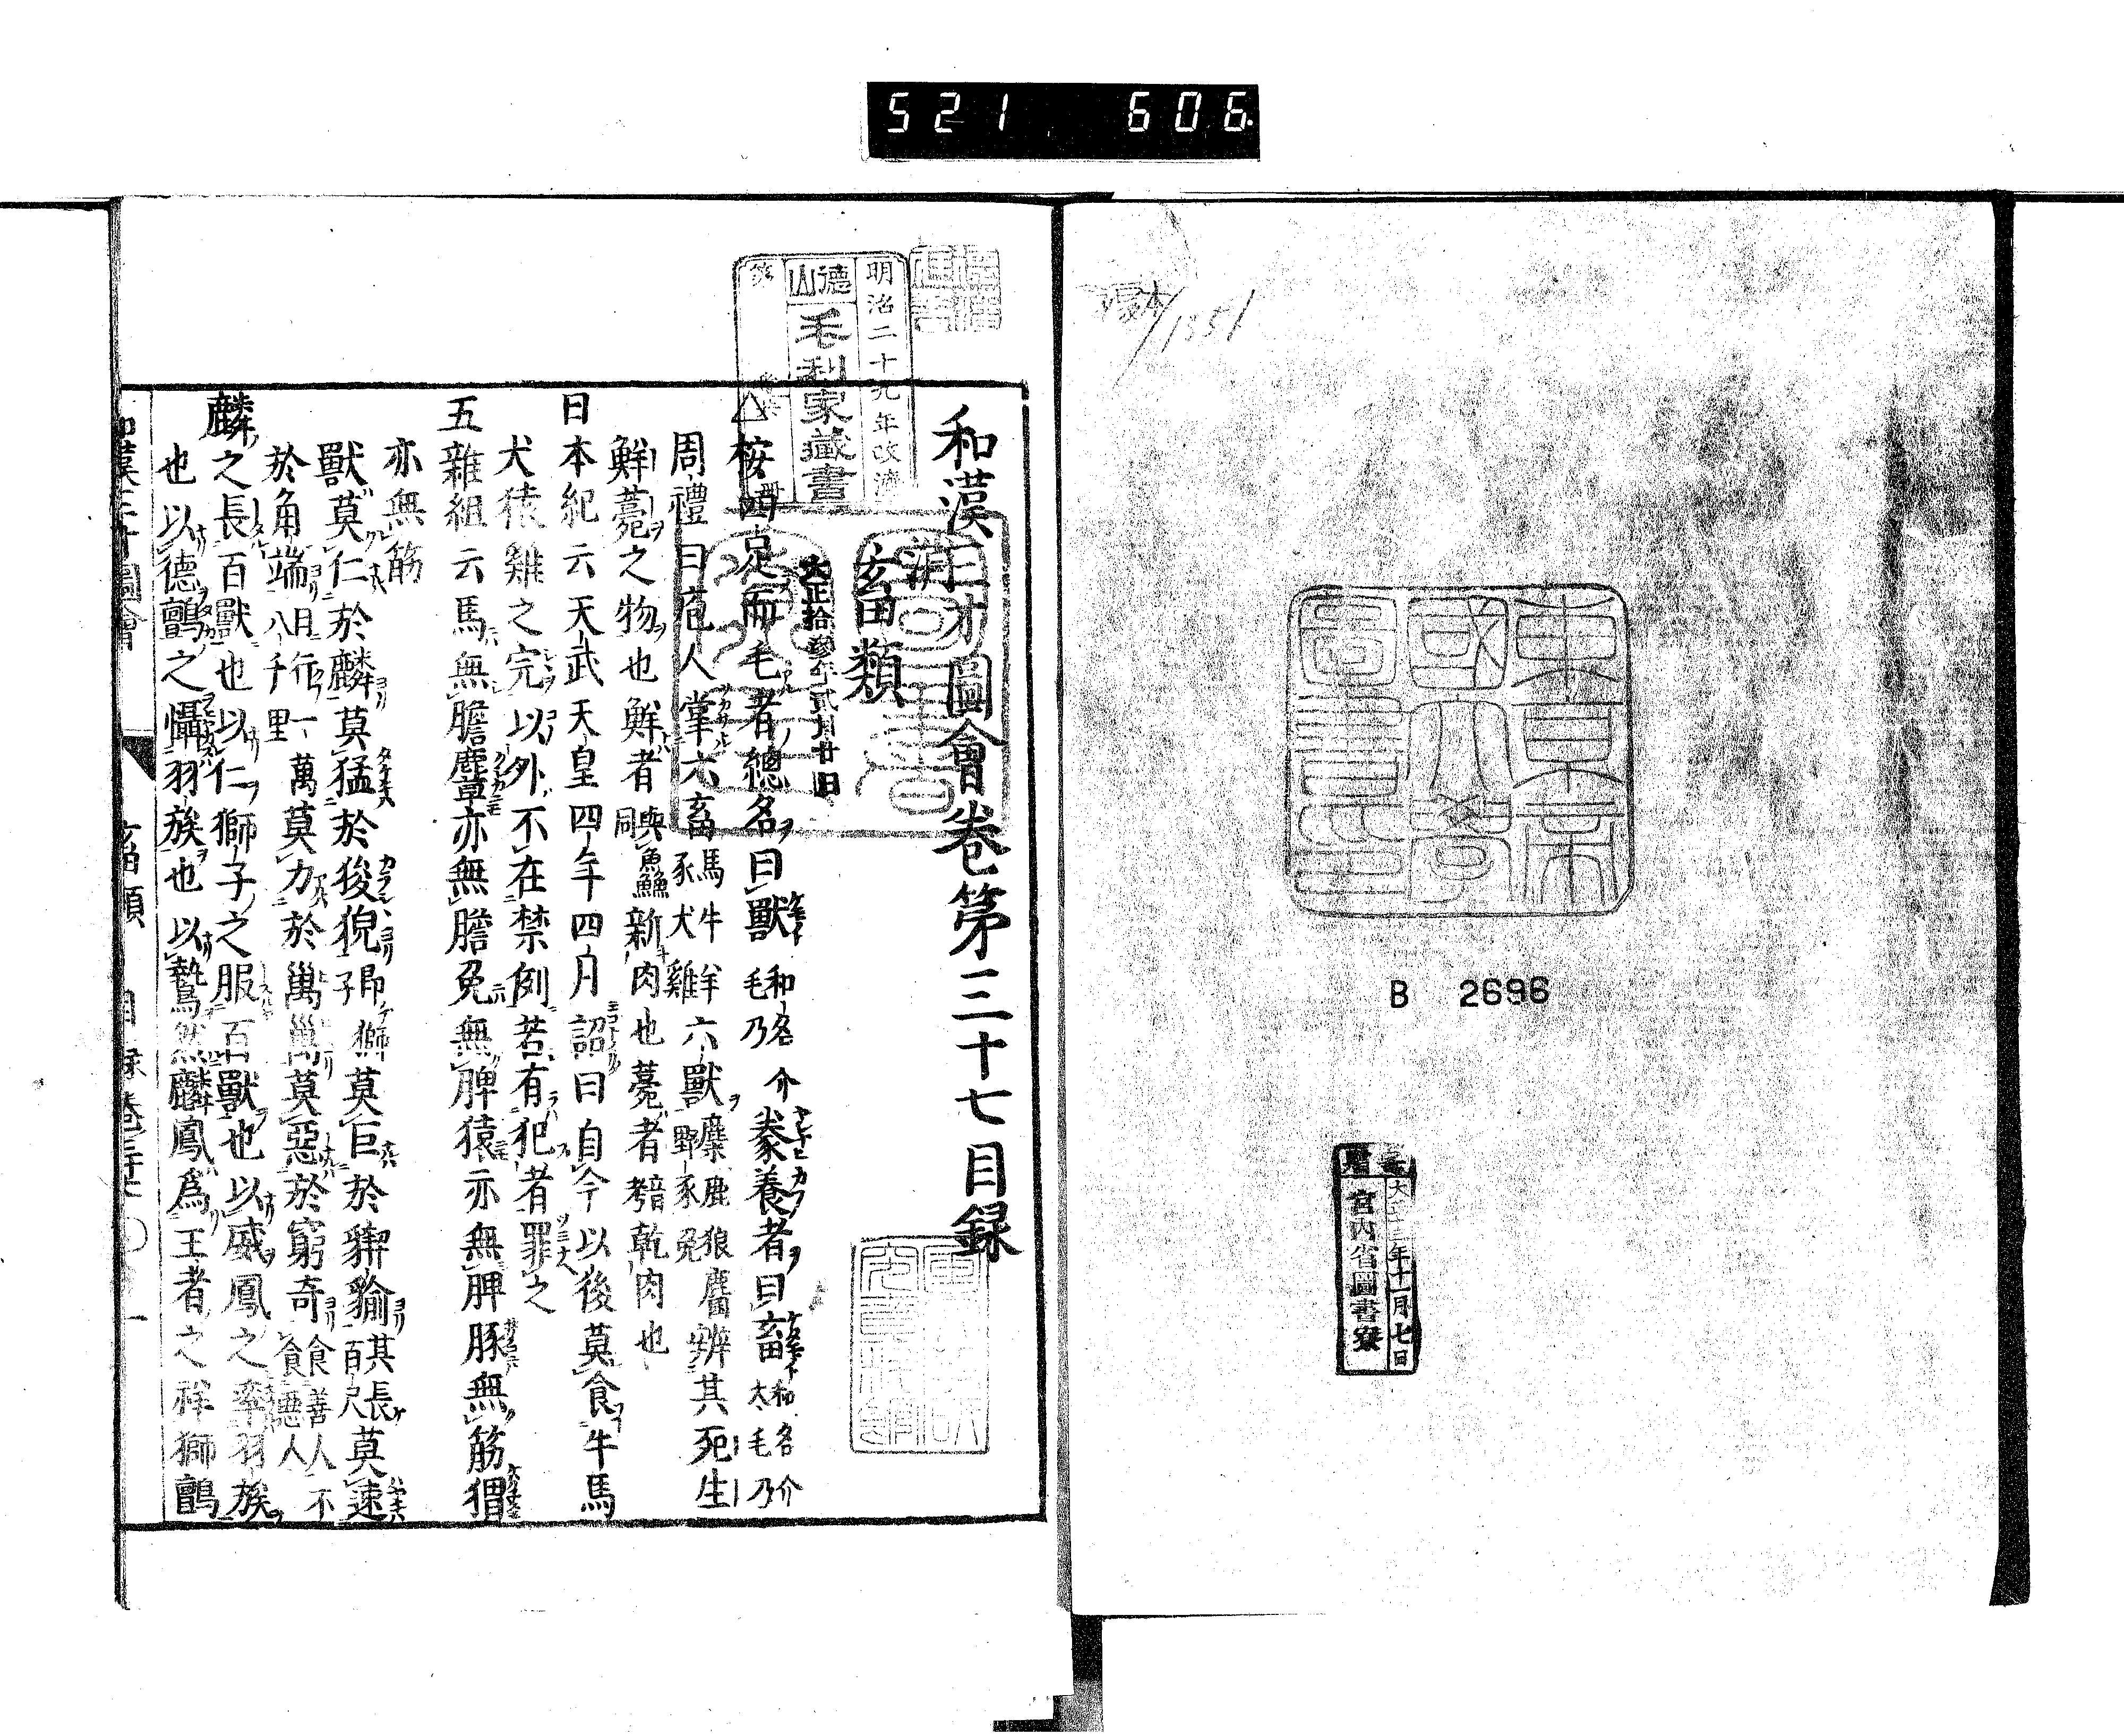 521 606
1351
B 2696
東京帝
國大學
圖書印
大正十三年十一月七日
宮内省圖書寮
明治二十九年改濟
德山
毛利家藏書
第
大正拾參年貳月廿日
和漢三才圖會卷第三十七目録
畜類
△按四足而毛者總名曰獸 和名介毛乃 豢養者曰畜 和名介太毛乃
周禮曰庖人掌六畜 馬牛羊豕犬雞 六獸 麋鹿狼麕野豕兔 辨其死生
鮮薧之物也鮮者 與鱻同 新肉也薧者 音考 乾肉也
日本紀云天武天皇四年四月詔曰自今以後莫食牛馬
犬猿雞之完以外不在禁例若有犯者罪之
五雜組云馬無膽麞亦無膽兔無脾猿亦無脾豚無筋猬
亦無筋
獸莫仁於麟莫猛於狻猊 即獅子 莫巨於貏貐 其長百尺 莫速
於角端 日行一萬八千里 莫力於𤲞𤲞莫惡於窮奇 食善人不食惡人
麟之長百獸也以仁獅子之服百獸也以威鳳之率羽族
也以德鸇之懾羽族也以鷙然麟鳳爲王者之祥獅鸇
和漢三才圖會 畜類 目録 卷三十七 ○ 一